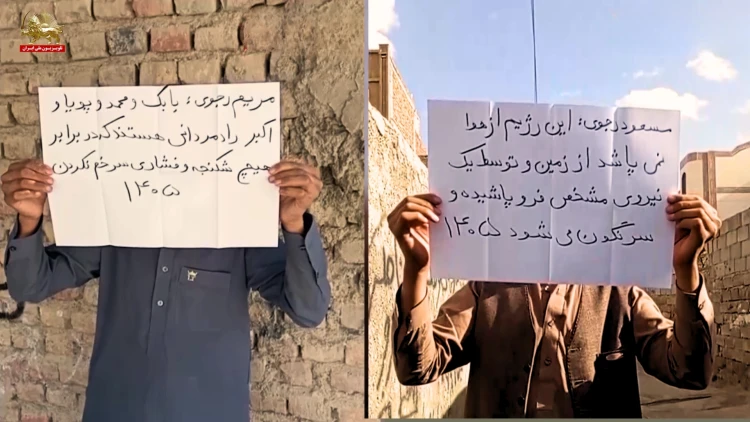 سیمای آزادی
تلویزیون ملی ایران
مریم رجوی: بابک و محمد و پویا و
اکبر رادمردانی هستند که در برابر
هیچ شکنجه و فشاری سر خم نکردن
۱۴۰۵
مسعود رجوی: این رژیم از هوا
نمی پاشد از زمین و توسط یک
نیروی مشخص فرو پاشیده و
سرنگون می شود ۱۴۰۵